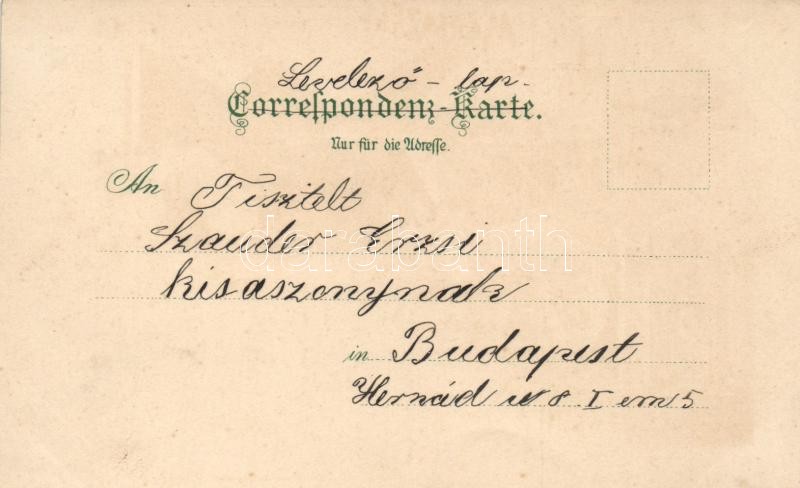 Levelező-lap-
Correspondenz-Karte.
Nur für die Adresse.
An Tisztelt
Szauder Erzsi
kisaszonynak
in Budapest
Hernád u 8 I em 5
darabanth